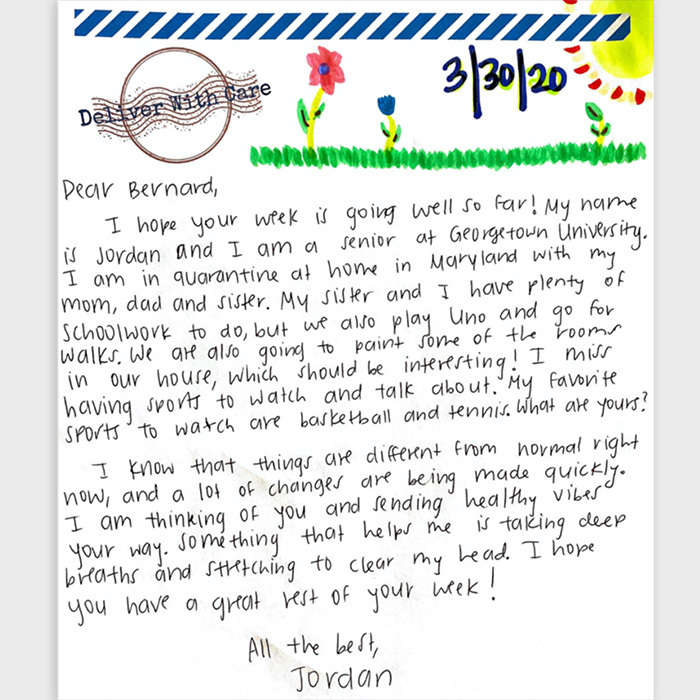 3/30/20
Deliver With Care
Dear Bernard,
I hope your week is going well so far! My name
is Jordan and I am a senior at Georgetown University.
I am in quarantine at home in Maryland with my
mom, dad and sister. My sister and I have plenty of
schoolwork to do, but we also play Uno and go for
walks. We are also going to paint some of the rooms
in our house, which should be interesting! I miss
having sports to watch and talk about. My favorite
sports to watch are basketball and tennis. What are yours?
I know that things are different from normal right
now, and a lot of changes are being made quickly.
I am thinking of you and sending healthy vibes
your way. Something that helps me is taking deep
breaths and stretching to clear my head. I hope
you have a great rest of your week!
All the best,
Jordan